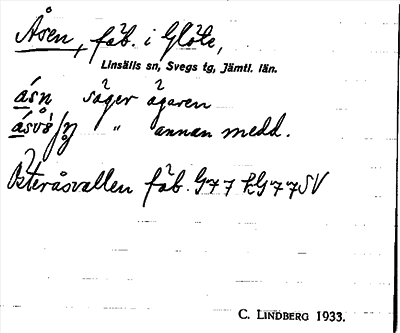 Åsen, fäb. i Glöte,
Linsälls sn, Svegs tg, Jämtl. län.
åsn̥ säger ägaren
" annan medd.
Österåsvallen fäb. G77 kG77SV
C. LINDBERG 1933.